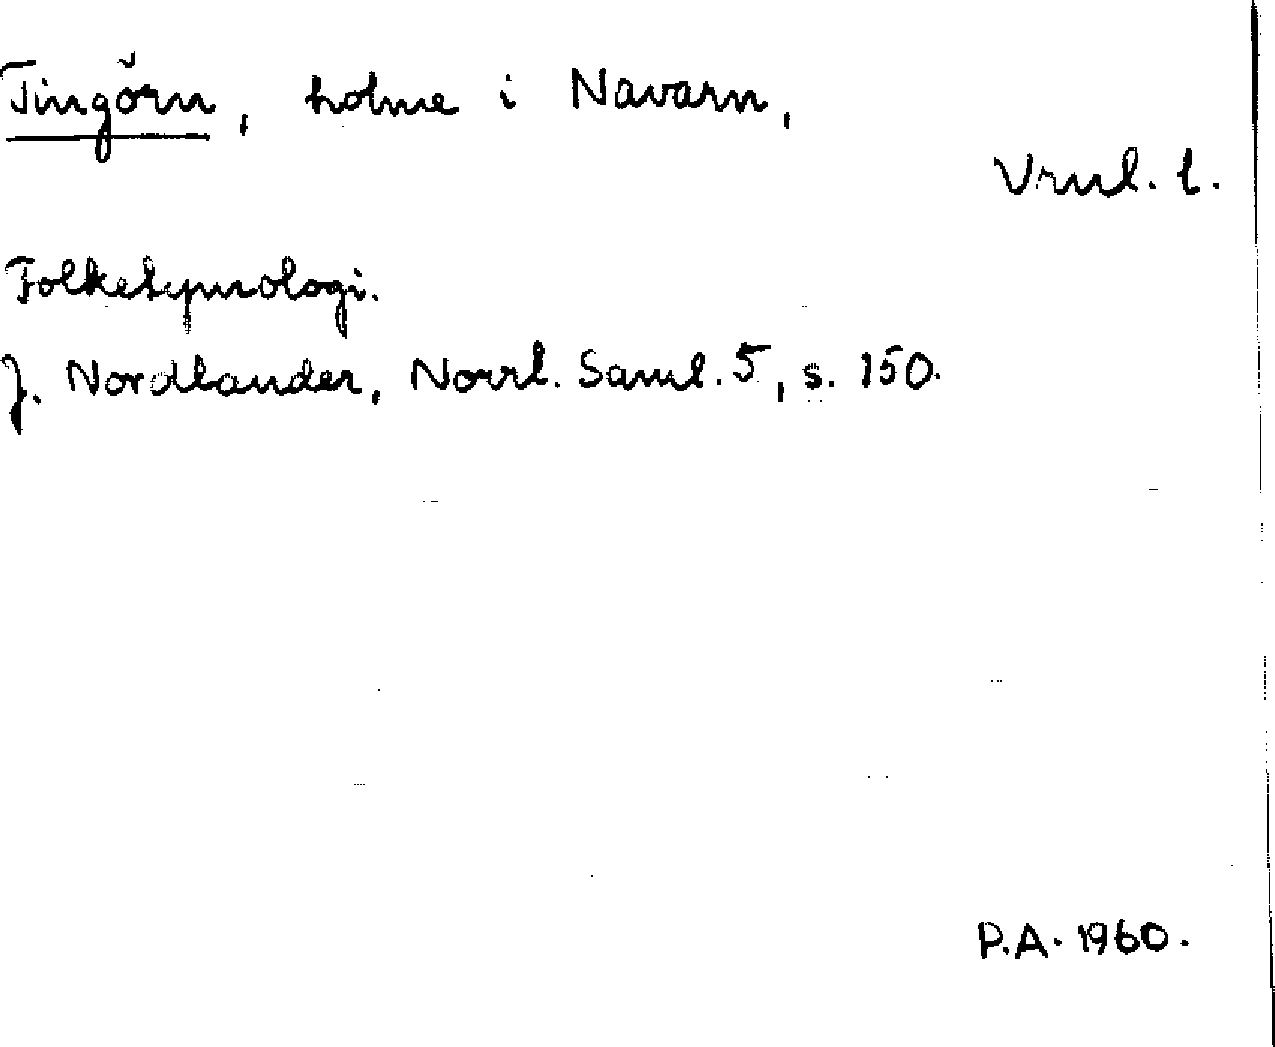 Tingörn, holme i Navarn,
Vrml. l.
Folketymologi.
J. Nordlander, Norrl. Saml. 5, s. 150.
P.A. 1960.